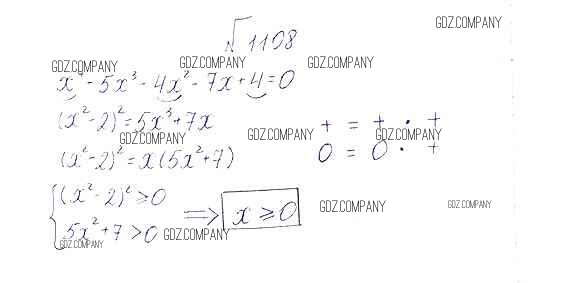 GDZ.COMPANY
√1108
GDZ.COMPANY GDZ.COMPANY GDZ.COMPANY
x⁴ - 5x³ - 4x² - 7x + 4 = 0
(x² - 2)² = 5x³ + 7x
GDZ.COMPANY
+ = + · +
GDZ.COMPANY GDZ.COMPANY
(x² - 2)² = x(5x² + 7)
0 = 0 · +
(x² - 2)² ≥ 0
5x² + 7 > 0
⇒ x ≥ 0
GDZ.COMPANY GDZ.COMPANY
GDZ.COMPANY GDZ.COMPANY